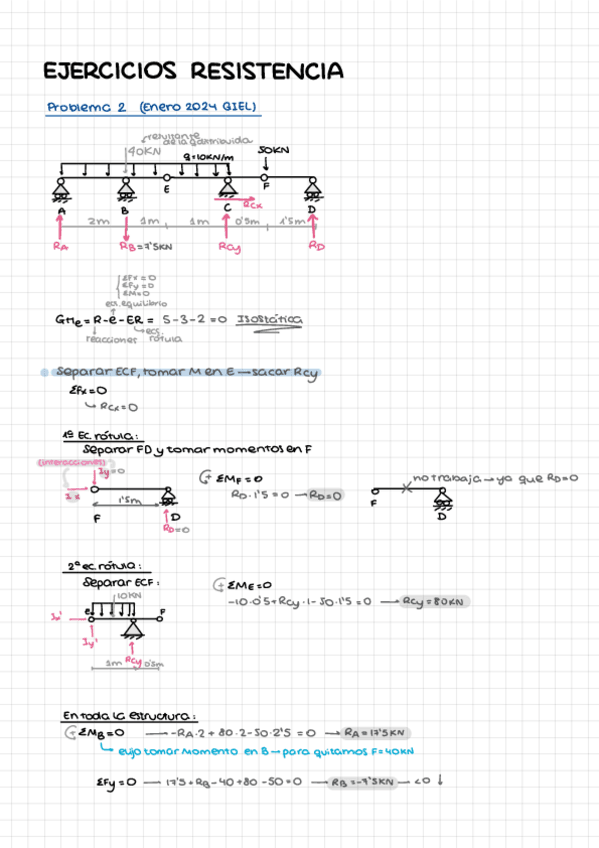 EJERCICIOS RESISTENCIA
Problema 2 (Enero 2024 GIEL)
resultante
de la q distribuida
40KN
q=10KN/m
50KN
E
F
A
B
C
RCx
D
2m
1m
1m
0'5m
1'5m
RA
RB=7'5KN
RCy
RD
ΣFx=0
ΣFy=0
ΣM=0
ecs. equilibrio
GHe = R-e-ER = 5-3-2 =0 Isostática
reacciones
ecs. rótula
Separar ECF, tomar M en E → sacar RCy
ΣFx=0
↳ RCx=0
1ª Ec rótula:
Separar FD y tomar momentos en F
(interacciones)
Iy=0
Ix
1'5m
F
D
RD=0
ΣMF=0
RD·1'5=0 → RD=0
no trabaja → ya que RD=0
F
D
2ª ec. rótula:
Separar ECF:
10KN
e
F
Ix'
Iy'
1m RCy 0'5m
ΣME=0
-10·0'5+RCy·1-50·1'5=0 → RCy=80KN
En toda la estructura:
ΣMB=0 → -RA·2+80·2-50·2'5=0 → RA=17'5KN
↳ elijo tomar Momento en B → para quitarnos F=40KN
ΣFy=0 — 17'5+RB-40+80-50=0 → RB=-7'5KN — <0 ↓